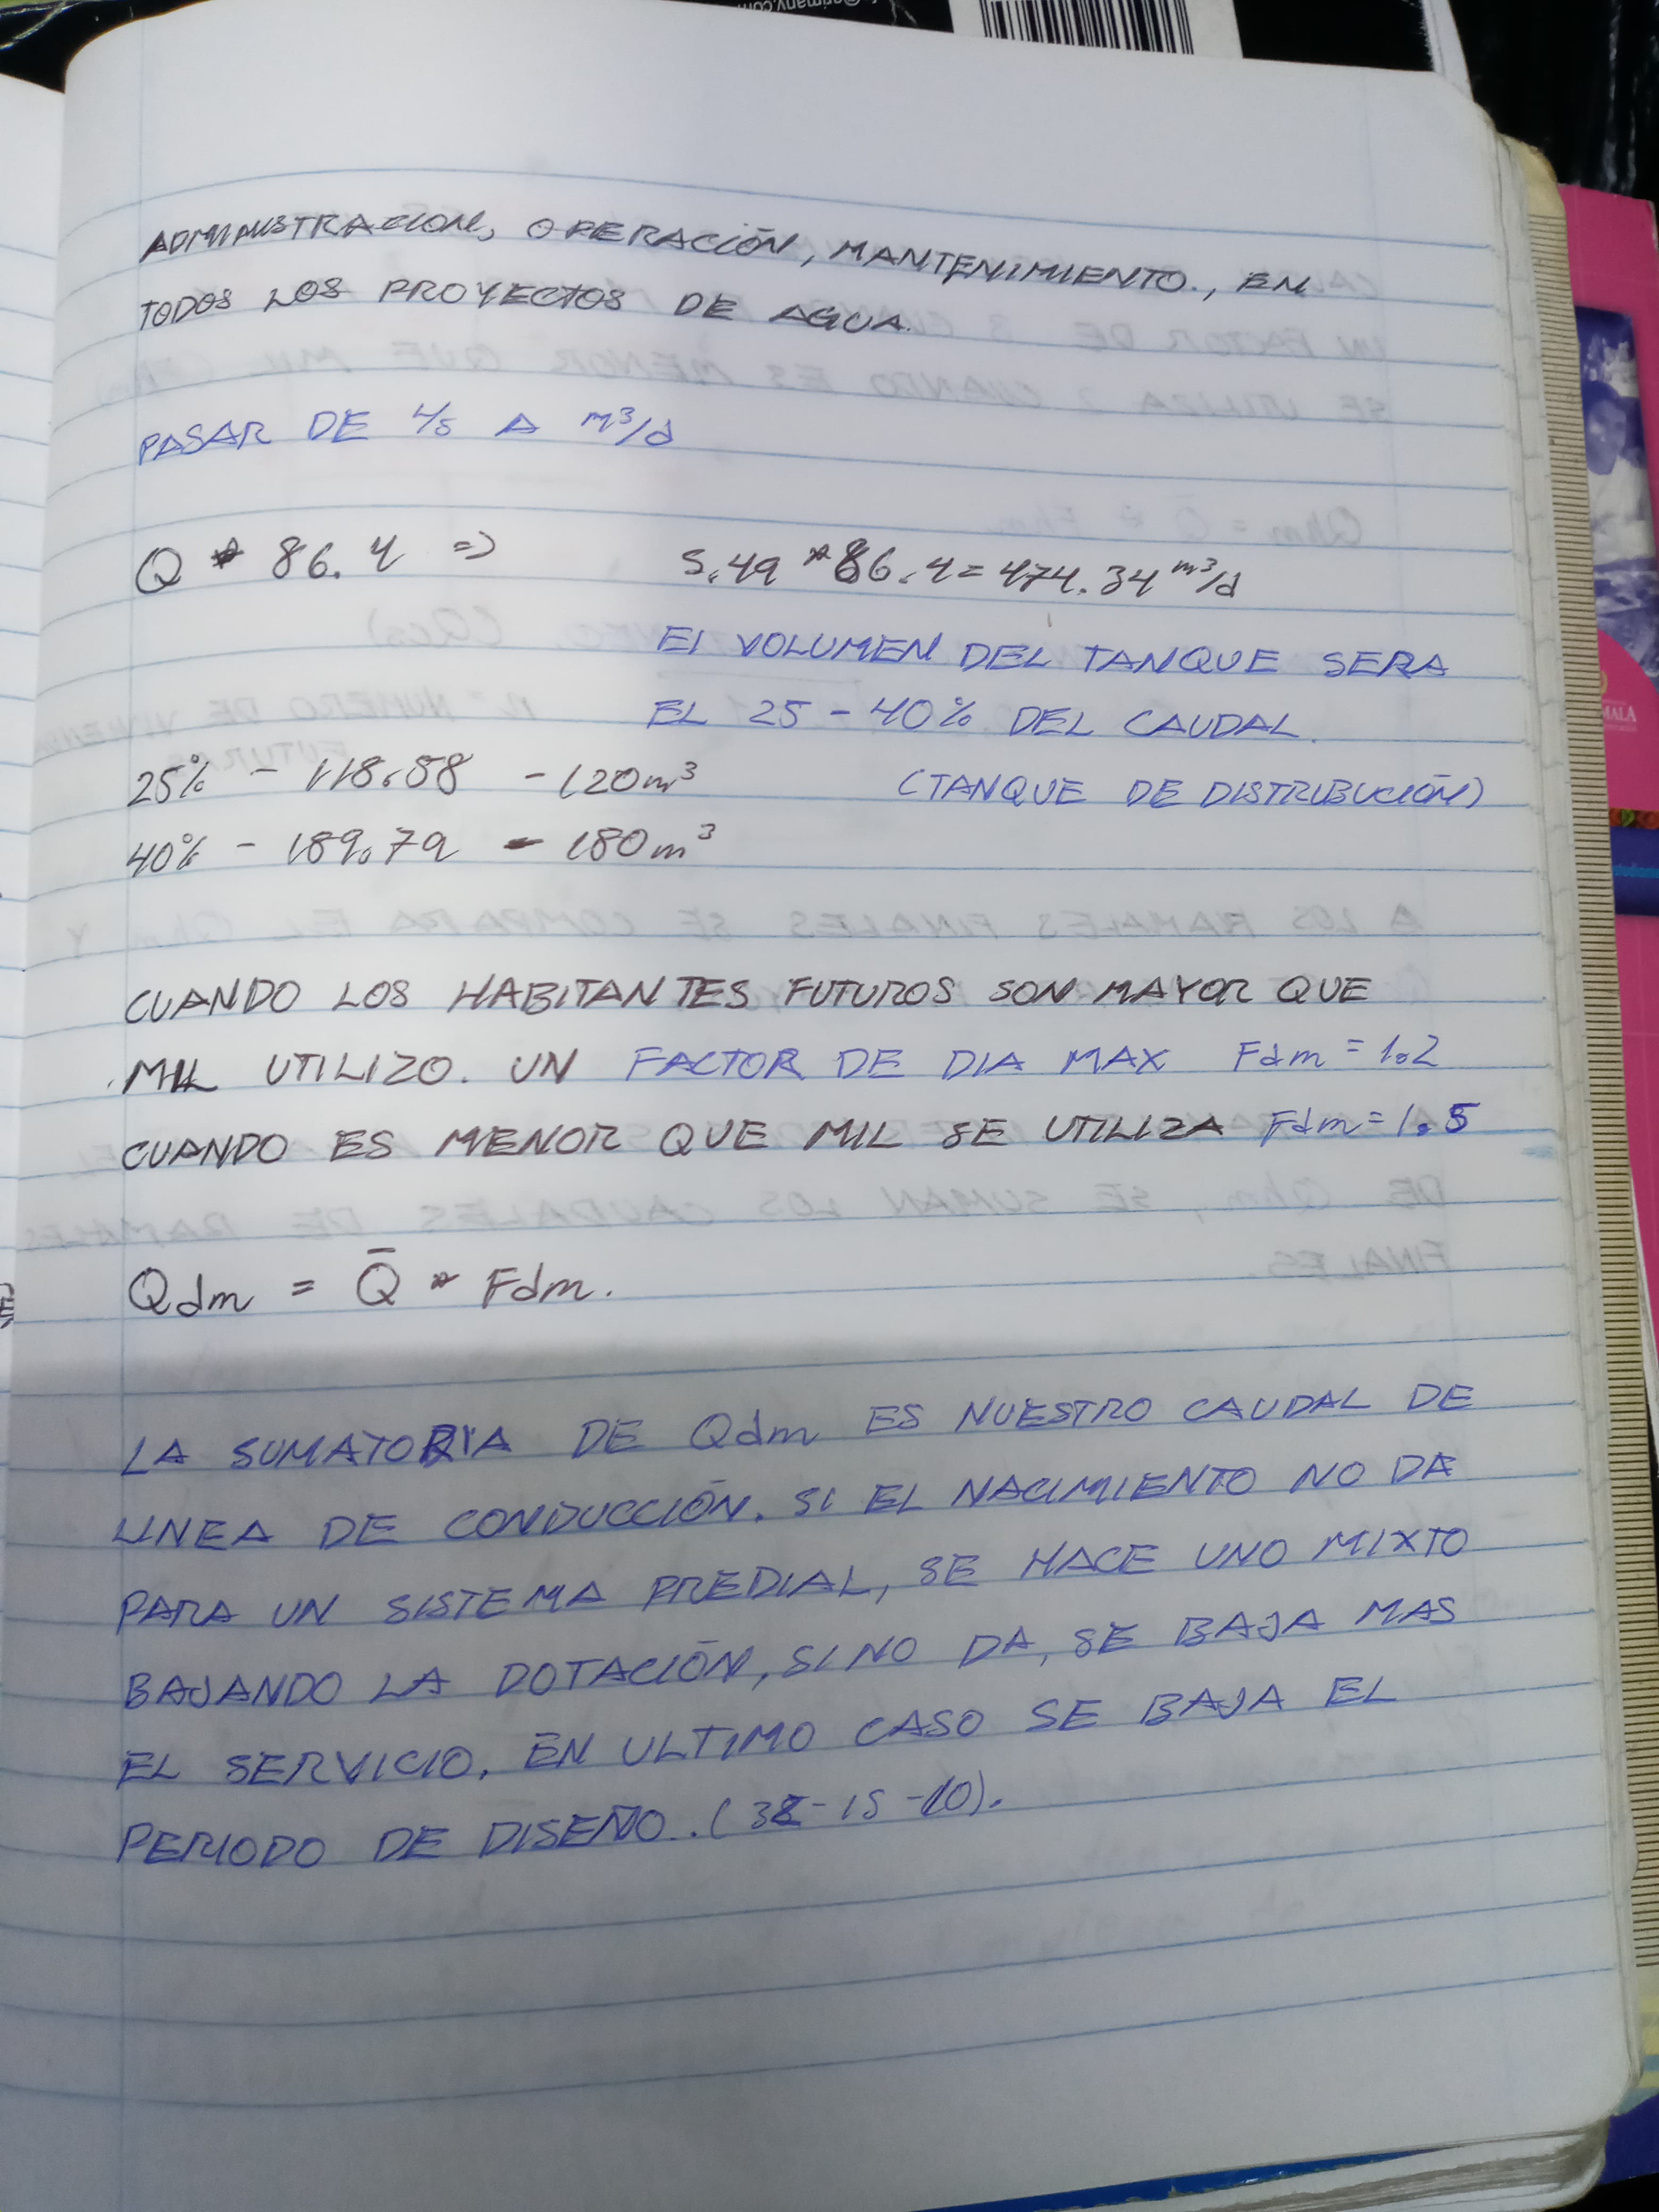 ADMINISTRACION, OPERACIÓN, MANTENIMIENTO., EN
TODOS LOS PROYECTOS DE AGUA.
PASAR DE l/s A m³/d
Q * 86.4 => 5.49 * 86.4 = 474.34 m³/d
El VOLUMEN DEL TANQUE SERA
EL 25 - 40% DEL CAUDAL.
25% - 118.58 - 120 m³ (TANQUE DE DISTRIBUCIÓN)
40% - 189.79 - 180 m³
CUANDO LOS HABITANTES FUTUROS SON MAYOR QUE
MIL UTILIZO. UN FACTOR DE DIA MAX Fdm = 1.2
CUANDO ES MENOR QUE MIL SE UTILIZA Fdm = 1.5
Qdm = Q̄ * Fdm.
LA SUMATORIA DE Qdm ES NUESTRO CAUDAL DE
LINEA DE CONDUCCIÓN. SI EL NACIMIENTO NO DA
PARA UN SISTEMA PREDIAL, SE HACE UNO MIXTO
BAJANDO LA DOTACIÓN, SI NO DA, SE BAJA MAS
EL SERVICIO, EN ULTIMO CASO SE BAJA EL
PERIODO DE DISEÑO..( - 15 - 10).
MALA